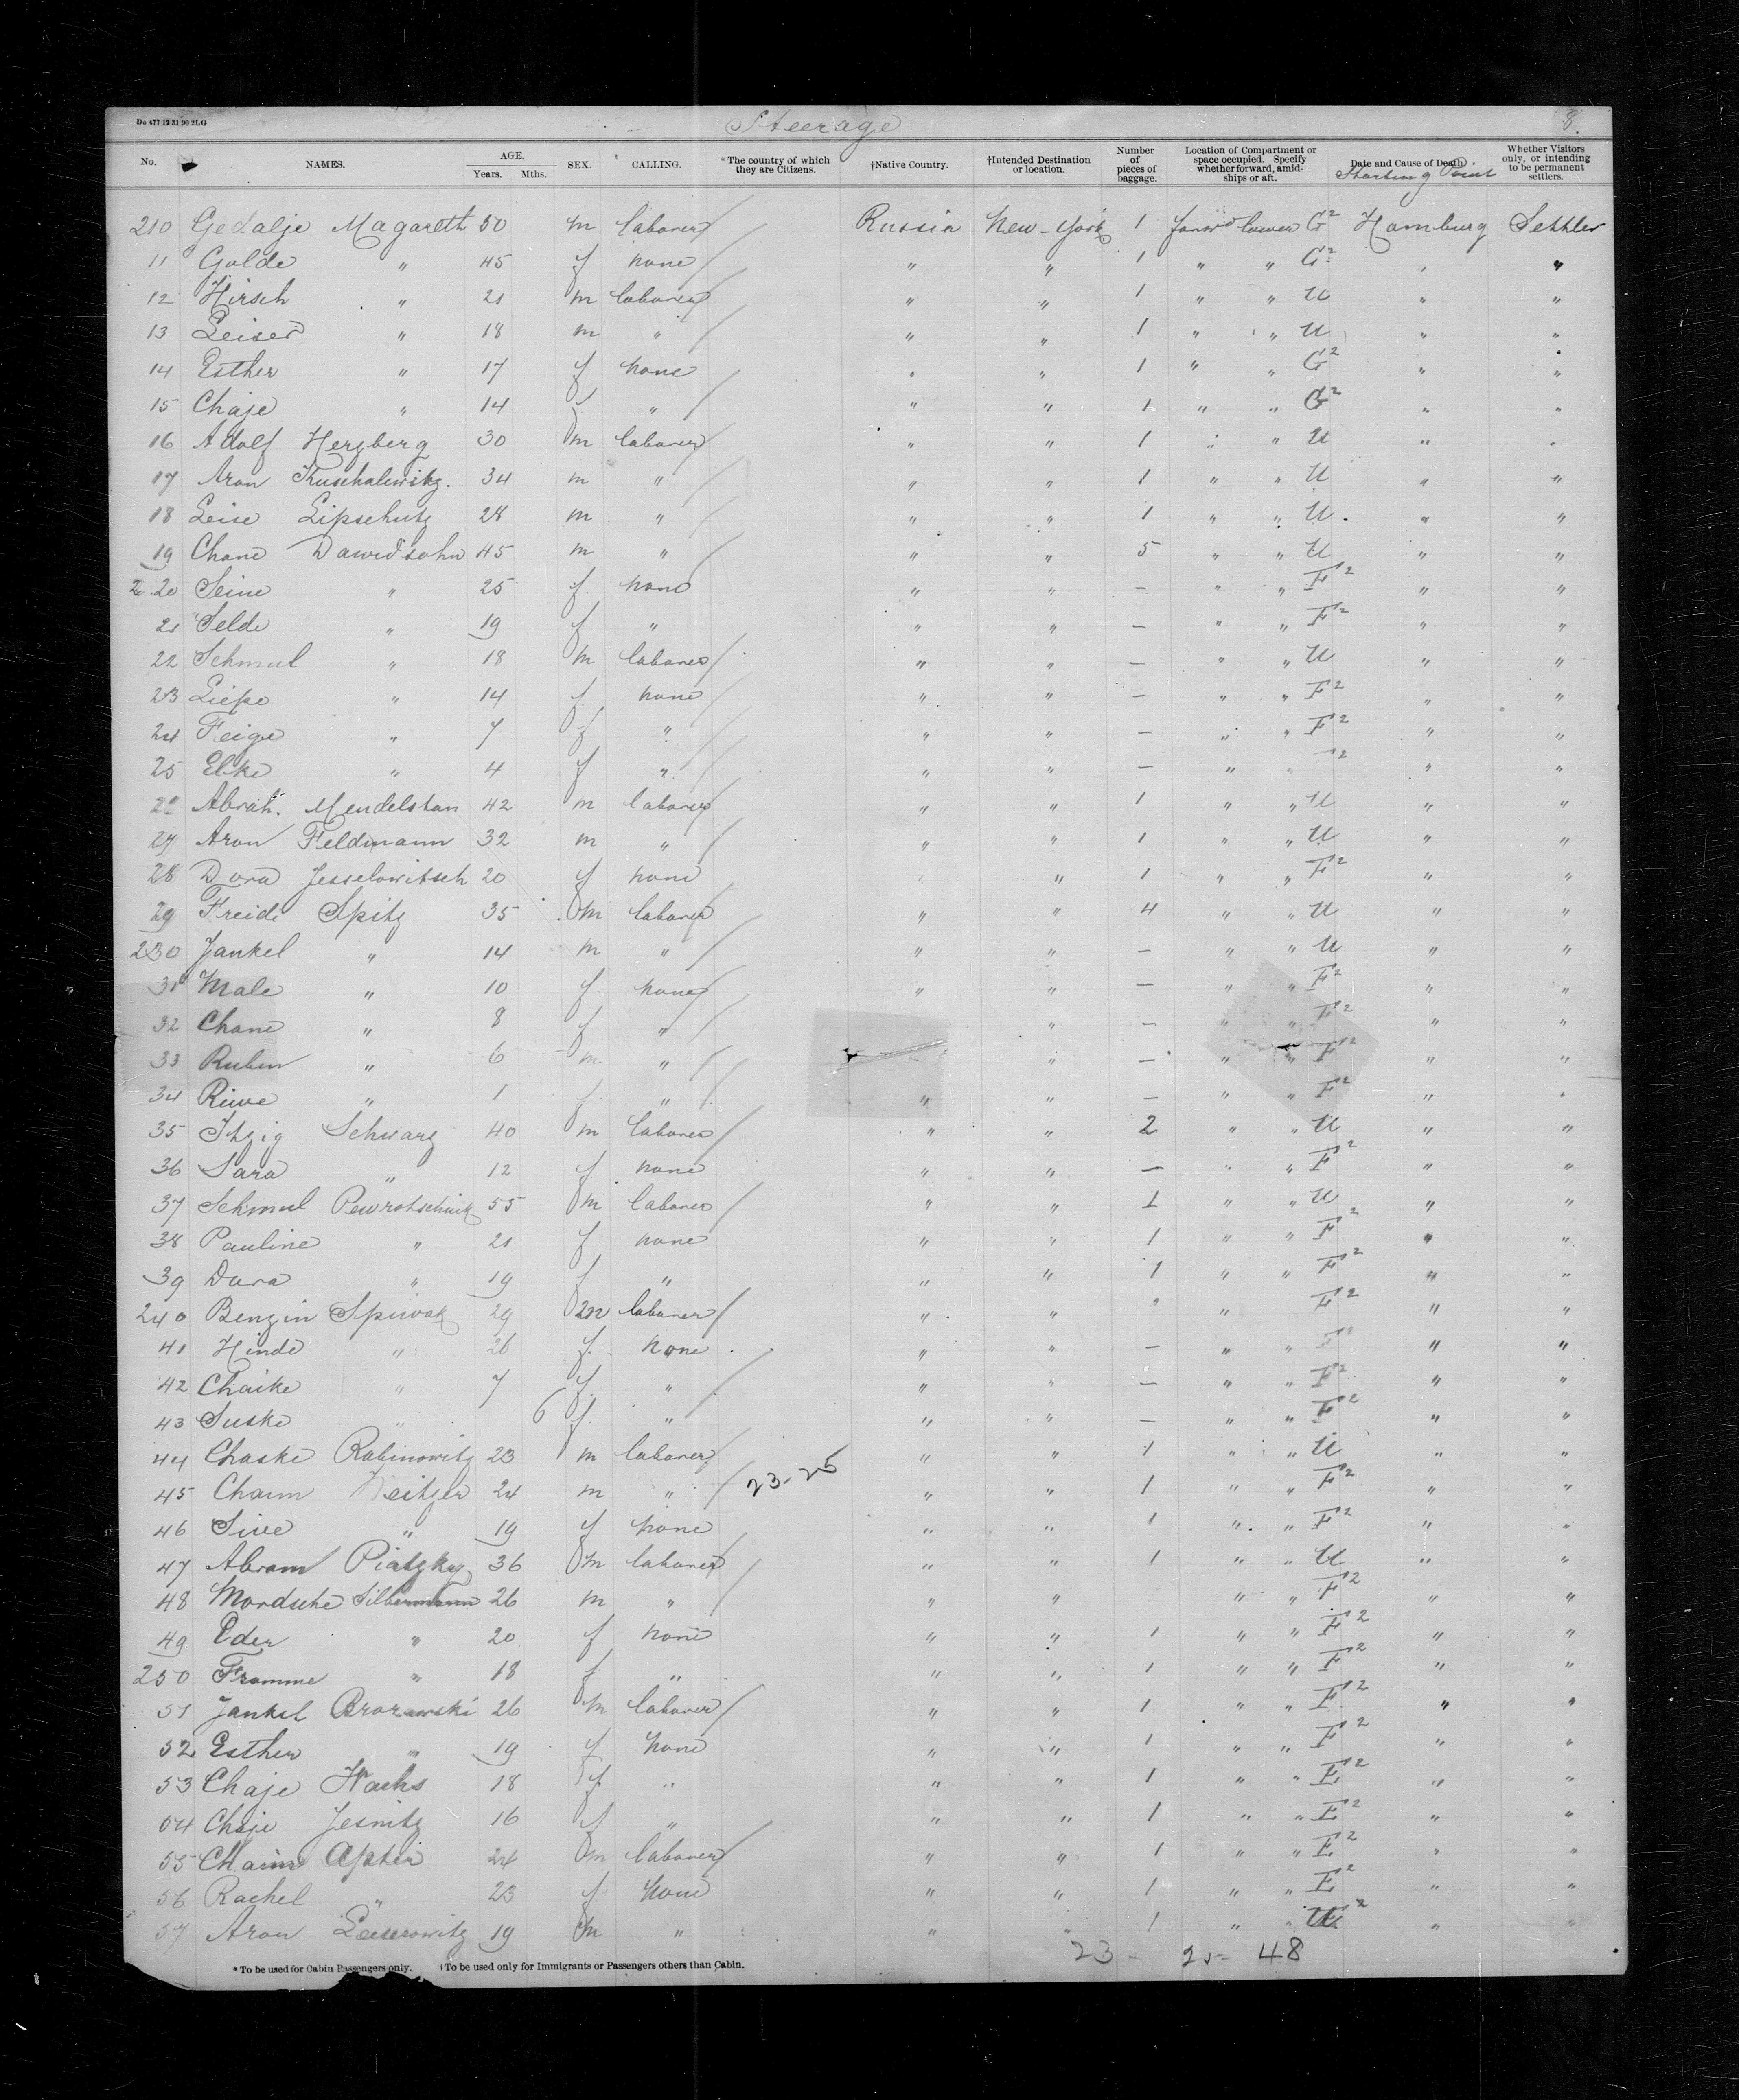 Do 477 12 31 90 2LG
Steerage
8.
No. NAMES. AGE. Years. Mths. SEX. CALLING. *The country of which they are Citizens. †Native Country. †Intended Destination or location. Number of pieces of baggage. Location of Compartment or space occupied. Specify whether forward, amidships or aft. Date and Cause of Death. Starting Point Whether Visitors only, or intending to be permanent settlers.
210 Gedalje Magareth 50 m laborer Russia New-York 1 lower G2 Hamburg Settler
11 Golde " 45 f none " " 1 " " G2 " "
12 Hirsch " 21 m laborer " " 1 " " U " "
13 Leiser " 18 m " " " 1 " " U " "
14 Esther " 17 f none " " 1 " " G2 " "
15 Chaje " 14 f " " " 1 " " G2 " "
16 Adolf Herzberg 30 m laborer " " 1 " " U " "
17 Aron Kuschalewitz. 34 m " " " 1 " " U " "
18 Leise Lipschutz 28 m " " " 1 " " U " "
19 Chane Dawidsohn 45 m " " " 5 " " U " "
20 Seine " 25 f none " " – " " F2 " "
21 Selde " 19 f " " " – " " F2 " "
22 Schmul " 18 m laborer " " – " " U " "
23 Liepe " 14 f none " " – " " F2 " "
24 Feige " 7 f " " " – " " F2 " "
25 Elke " 4 f " " " – " 2 " "
Abrah. Mendelstan 42 m laborer " " 1 " " U " "
27 Aron Feldmann 32 m " " " 1 " " U " "
28 Dora Jesselowitsch 20 f none " 1 " " F2 " "
29 Freide Spitz 35 m laborer " " 4 " " U " "
230 Jankel " 14 m " " " – " " U " "
31 Male " 10 f none " " – " " F2 " "
32 Chane " 8 f " " – " " F2 " "
33 Ruben " 6 m " " – " " F2 " "
34 Riwe " 1 " " " – " " F2 " "
35 Itzig Schwarz 40 m laborer " " 2 " " U " "
36 Sara " 12 f none " " – " " F2 " "
37 Schmul 55 m laborer " " 1 " " U " "
38 Pauline " 21 f none " " 1 " " F2 " "
39 Dora " 19 f " " " 1 " " F2 " "
240 Benzin Spiwak 29 m laborer " " " F2 " "
41 Hinde " 26 f. none " " – " " F2 " "
42 Chaike " 7 f. " " " – " " F2 " "
43 Suske " 6 f. " " " – " " F2 " "
44 Chaske Rabinowitz 23 m laborer " " 1 " " U " "
45 Chaim 24 m " 23-25 " " 1 " " F2 " "
46 Sive " 19 f none " " 1 " " F2 " "
47 Abram Piatzky 36 m laborer " " 1 " " U " "
48 Mordsche Silbermann 26 m " " " " " F2 " "
49 Eder " 20 f none " " 1 " " F2 " "
250 Fromme " 18 f " " " 1 " " F2 " "
51 Jankel 26 m laborer " " 1 " " F2 " "
52 Esther " 19 f none " " 1 " " F2 " "
53 Chaje Wachs 18 f " " " 1 " " E2 " "
54 Chaje Jesnitz 16 f " " " 1 " " E2 " "
55 Chaim Apter 24 m laborer " " 1 " " E2 " "
56 Rachel " 23 f none " " 1 " " E2 " "
57 Aron Leiserowitz 19 m " " " 1 " " 2 " "
23 - 25 = 48
*To be used for Cabin Passengers only. †To be used only for Immigrants or Passengers others than Cabin.